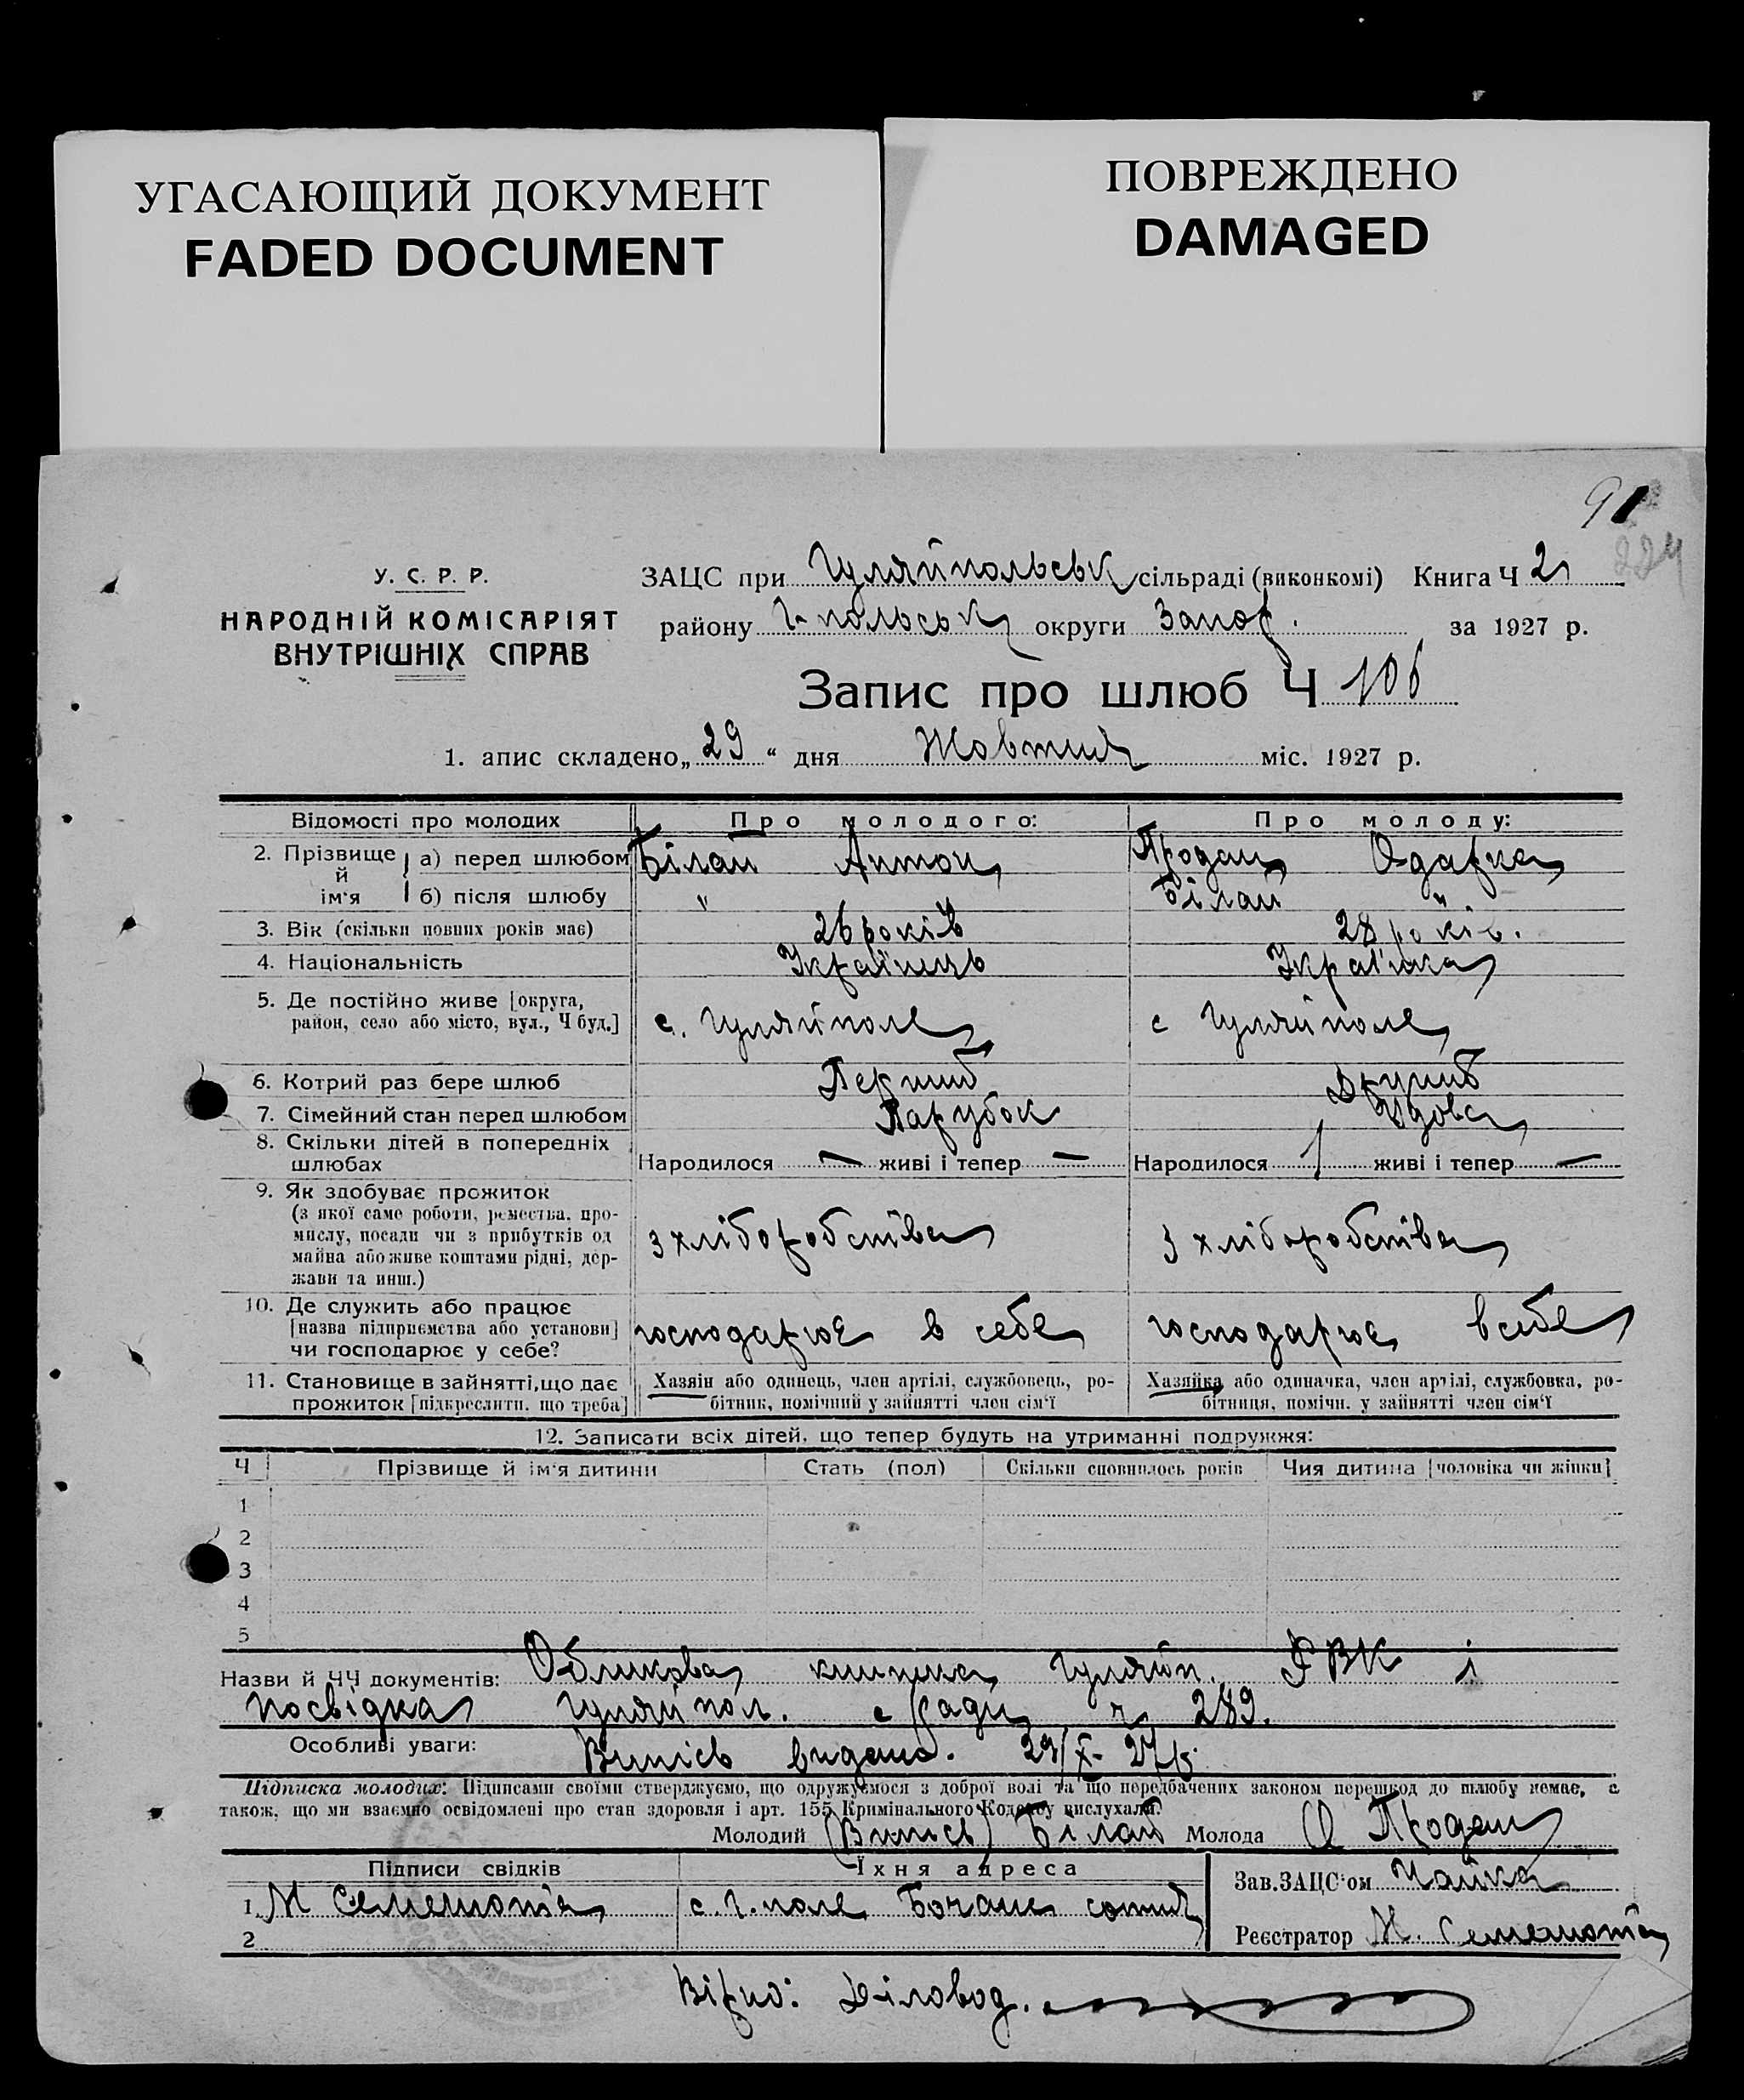 УГАСАЮЩИЙ ДОКУМЕНТ
FADED DOCUMENT
ПОВРЕЖДЕНО
DAMAGED
91
224
У. С. Р. Р.
НАРОДНІЙ КОМІСАРІЯТ
ВНУТРІШНІХ СПРАВ
ЗАЦС при Гуляйпольськ сільраді (виконкомі) Книга Ч 2
району Г-польськ округи Запор. за 1927 р.
Запис про шлюб Ч 106
1. апис складено „29“ дня Жовтня міс. 1927 р.
Відомості про молодих Про молодого: Про молоду:
2. Прізвище й ім'я а) перед шлюбом Білай Антон Продан Одарка
б) після шлюбу " Білай "
3. Вік (скільки повних років має) 26 років 28 років.
4. Національність Українець Українка
5. Де постійно живе [округа, район, село або місто, вул., Ч буд.] с. Гуляйполе с Гуляйполе
6. Котрий раз бере шлюб Перший Другий
7. Сімейний стан перед шлюбом Парубок Удова
8. Скільки дітей в попередніх шлюбах Народилося — живі і тепер — Народилося 1 живі і тепер —
9. Як здобуває прожиток
(з якої саме роботи, ремества, про-
мислу, посади чи з прибутків од
майна або живе коштами рідні, дер-
жави та инш.)
з хліборобства з хліборобства
10. Де служить або працює
[назва підприємства або установи]
чи господарює у себе?
господарює в себе господарює в себе
11. Становище в зайнятті, що дає
прожиток [підкреслити, що треба]
Хазяін або одинець, член артілі, службовець, ро-
бітник, помічний у зайнятті член сім'ї
Хазяйка або одиначка, член артілі, службовка, ро-
бітниця, помічн. у зайнятті член сім'ї
12. Записати всіх дітей, що тепер будуть на утриманні подружжя:
Ч Прізвище й ім'я дитини Стать (пол) Скільки сповнилось років Чия дитина [чоловіка чи жінки]
1
2
3
4
5
Назви й ЧЧ документів: Облікова книжка Гуляйп. РВК і
посвідка Гуляйпол. с/ради ч 289.
Особливі уваги: Випісь видано. 29/X-27р.
Підписка молодих: Підписами своїми стверджуємо, що одружуємося з доброї волі та що передбачених законом перешкод до шлюбу немає, а
також, що ми взаємно освідомлені про стан здоровля і арт. 155 Кримінального Кодексу вислухали.
Молодий (Випісь) Білай Молода О Продан
Підписи свідків Їхня адреса Зав. ЗАЦС'ом Чайка
1. М с. Г. поле сотня
2 Реєстратор М.
Вірно: Діловод.